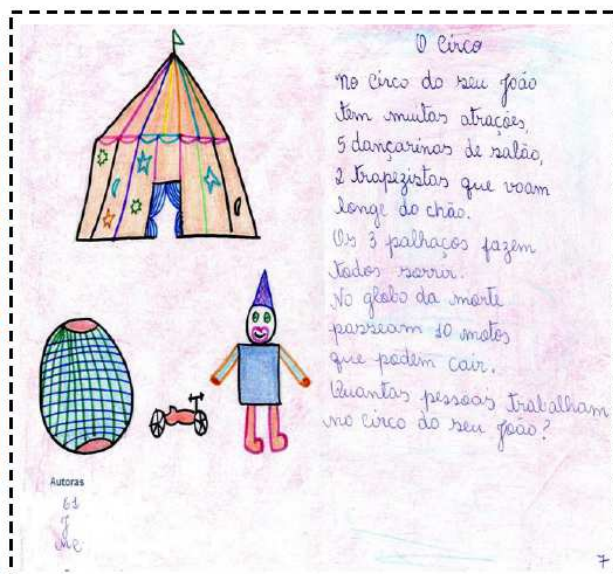 O Circo
No circo do seu João
tem muitas atrações,
5 dançarinas de salão,
2 trapezistas que voam
longe do chão.
Os 3 palhaços fazem
todos sorrir.
No globo da morte
passeam 10 motos
que podem cair.
Quantas pessoas trabalham
no circo do seu João?
Autoras
G1
J
Me
7